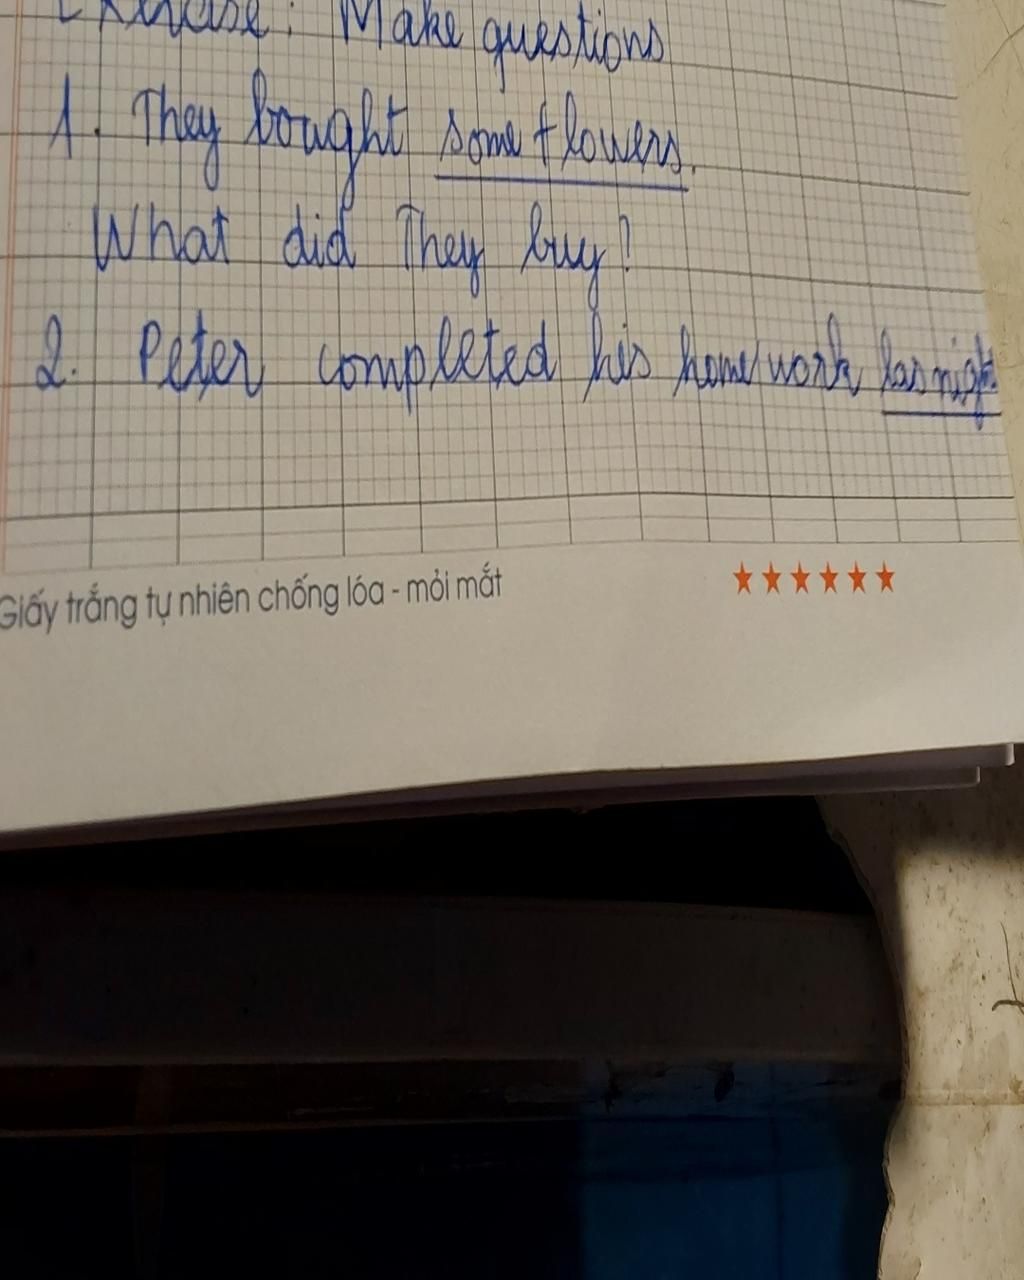 Exercise: Make questions
1. They bought some flowers.
What did They buy?
2. Peter completed his homework las nigh
Giấy trắng tự nhiên chống lóa - mỏi mắt